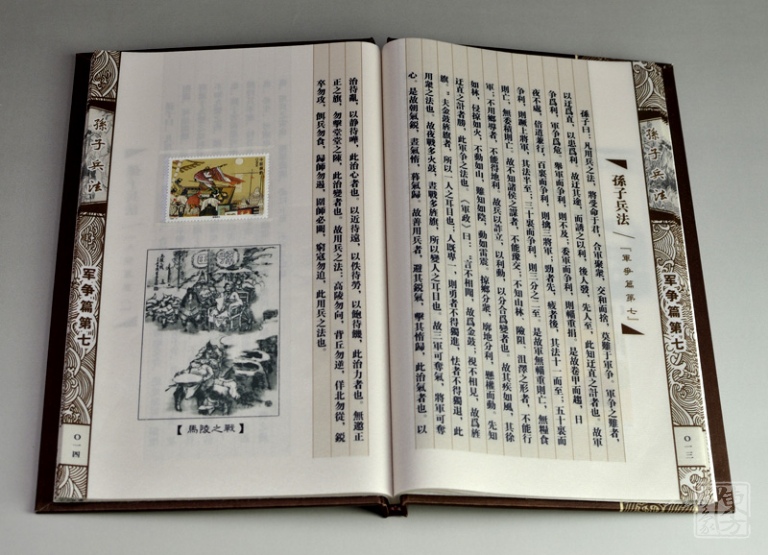 孫子兵法
军争篇第七
〇一三
孫子兵法
『軍爭篇第七』
孫子曰：凡用兵之法，將受命于君，合軍聚衆，交和而捨，莫難于軍爭。軍爭之難者，
以迂爲直，以患爲利。故迂其途，而誘之以利，後人發，先人至，此知迂直之計者也。故軍
爭爲利，軍爭爲危。舉軍而爭利，則不及；委軍而爭利，則輜重捐。是故卷甲而趨，日
夜不處，倍道兼行，百裏而爭利，則擒三將軍，勁者先，疲者後，其法十一而至；五十裏而
爭利，則蹶上將軍，其法半至；三十裏而爭利，則三分之二至。是故軍無輜重則亡，無糧食
則亡，無委積則亡。故不知諸侯之謀者，不能豫交；不知山林、險阻、沮澤之形者，不能行
軍；不用鄉導者，不能得地利。故兵以詐立，以利動，以分合爲變者也。故其疾如風，其徐
如林，侵掠如火，不動如山，難知如陰，動如雷震。掠鄉分衆，廓地分利，懸權而動。先知
迂直之計者勝，此軍爭之法也。《軍政》曰：言不相聞，故爲金鼓；視不相見，故爲旌
旗。夫金鼓旌旗者，所以一人之耳目也；人既專一，則勇者不得獨進，怯者不得獨退，此
用衆之法也。故夜戰多火鼓，晝戰多旌旗，所以變人之耳目也。故三軍可奪氣，將軍可奪
心。是故朝氣銳，晝氣惰，暮氣歸。故善用兵者，避其銳氣，擊其惰歸，此治氣者也。以
治待亂，以静待嘩，此治心者也。以近待遠，以佚待勞，以飽待饑，此治力者也。無邀正
正之旗，勿擊堂堂之陣，此治變者也。故用兵之法：高陵勿向，背丘勿逆，佯北勿從，銳
卒勿攻，餌兵勿食，歸師勿遏，圍師必闕，窮寇勿迫。此用兵之法也。
【馬陵之戰】
孫子兵法
军争篇第七
〇一四